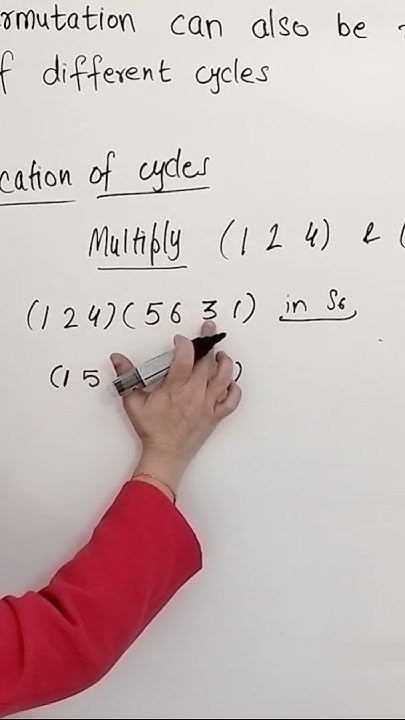 rmutation can also be
f different cycles
cation of cycles
Multiply (1 2 4) & (
(1 2 4)(5 6 3 1) in S6
(1 5 )